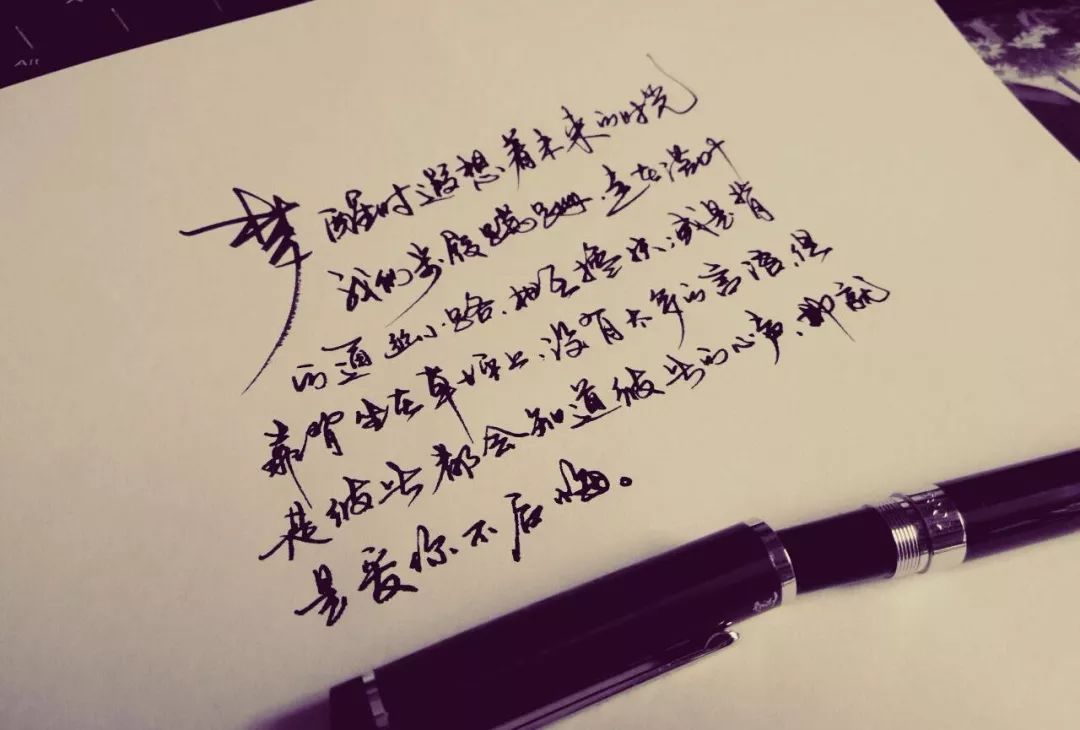 梦醒时遐想着未来的时光
我们步履蹒跚、走在落叶
的通幽小路、相互搀扶、或是背
靠背坐在草坪上、没有太多的言语、但
是彼此都会知道彼此的心声、那就
是爱你不后悔。
Alt